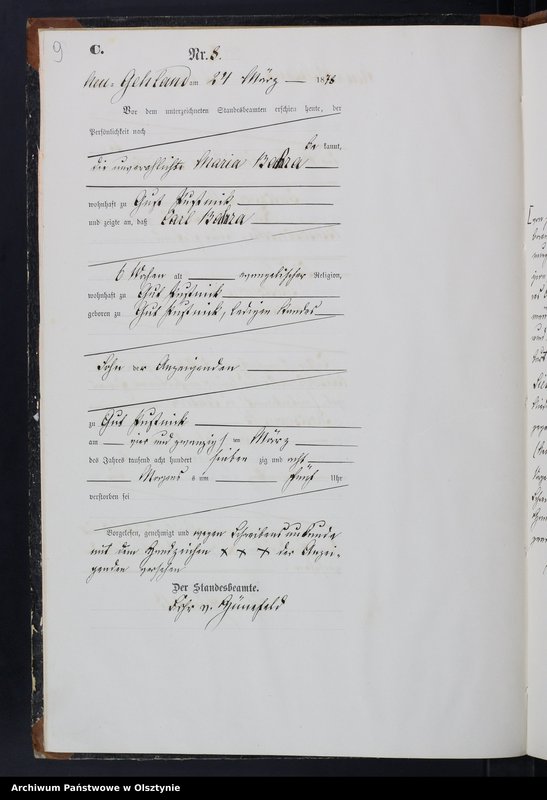 9
C.
Nr. 8.
Neu-Gehland am 24 März 1878
Vor dem unterzeichneten Standesbeamten erschien heute, der
Persönlichkeit nach
be kannt,
die unverehlichte Maria
wohnhaft zu Gut Pustnik
und zeigte an, daß Carl
6 Wochen alt evangelischer Religion,
wohnhaft zu Gut Pustnick
geboren zu Gut Pustnick, ledigen Standes
Sohn der Anzeigenden
zu Gut Pustnick
am vier und zwanzigsten März
des Jahres tausend acht hundert sieben zig und acht
Morgens um fünf Uhr
verstorben sei
Vorgelesen, genehmigt und wegen Schreibensunkunde
mit dem Handzeichen + + + der Anzei-
genden versehen
Der Standesbeamte.
v.
Archiwum Państwowe w Olsztynie